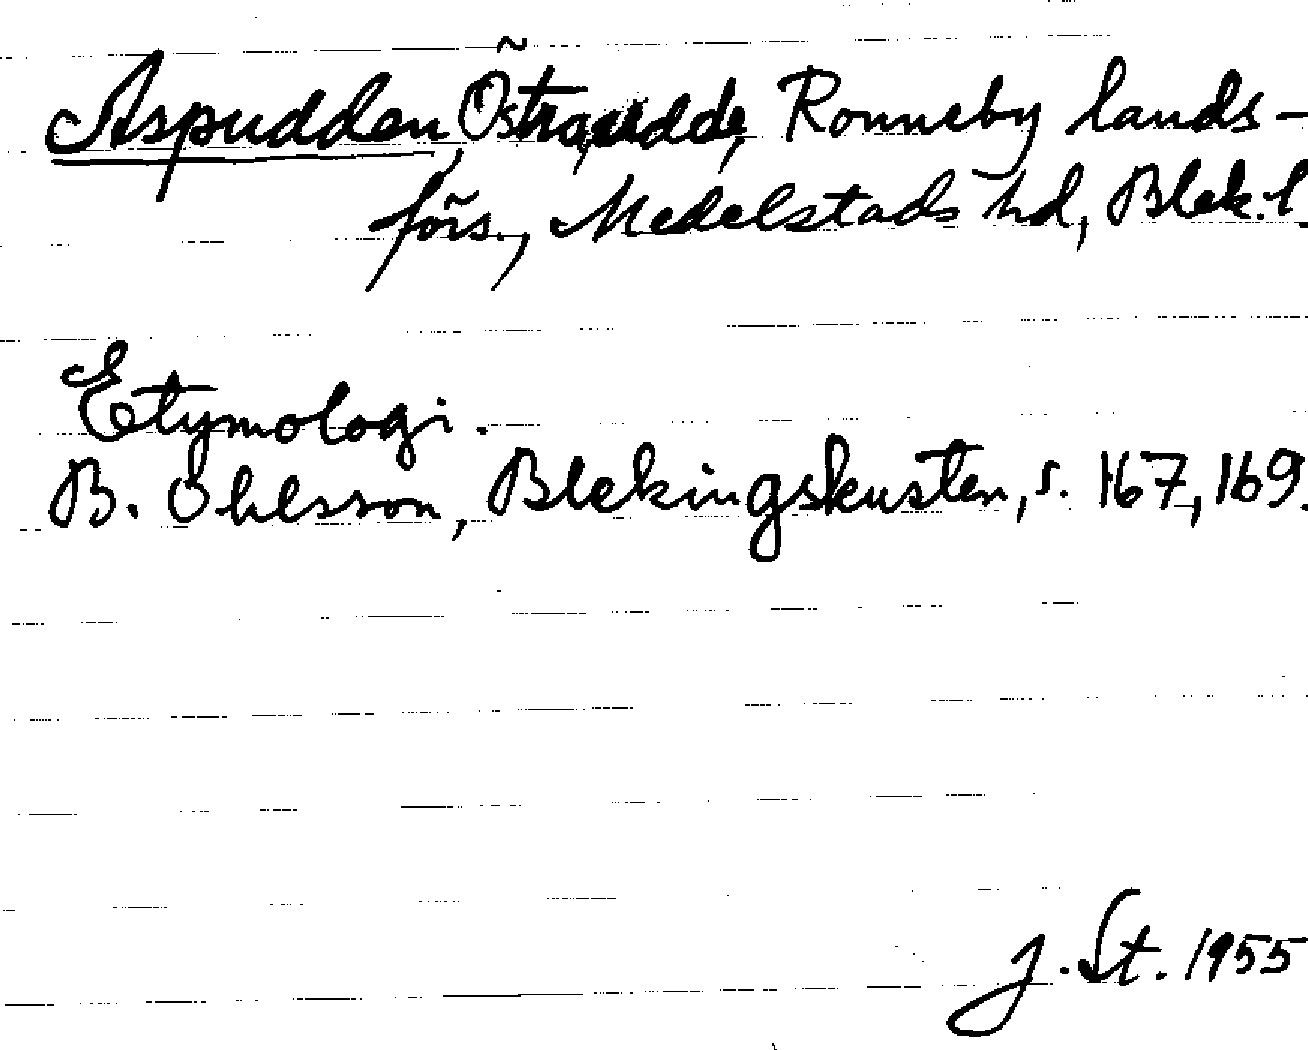 Aspudden, Östra, udde, Ronneby lands-
förs., Medelstads hd, Blek. l.
Etymologi.
B. Ohlsson, Blekingskusten, s. 167, 169.
J. St. 1955